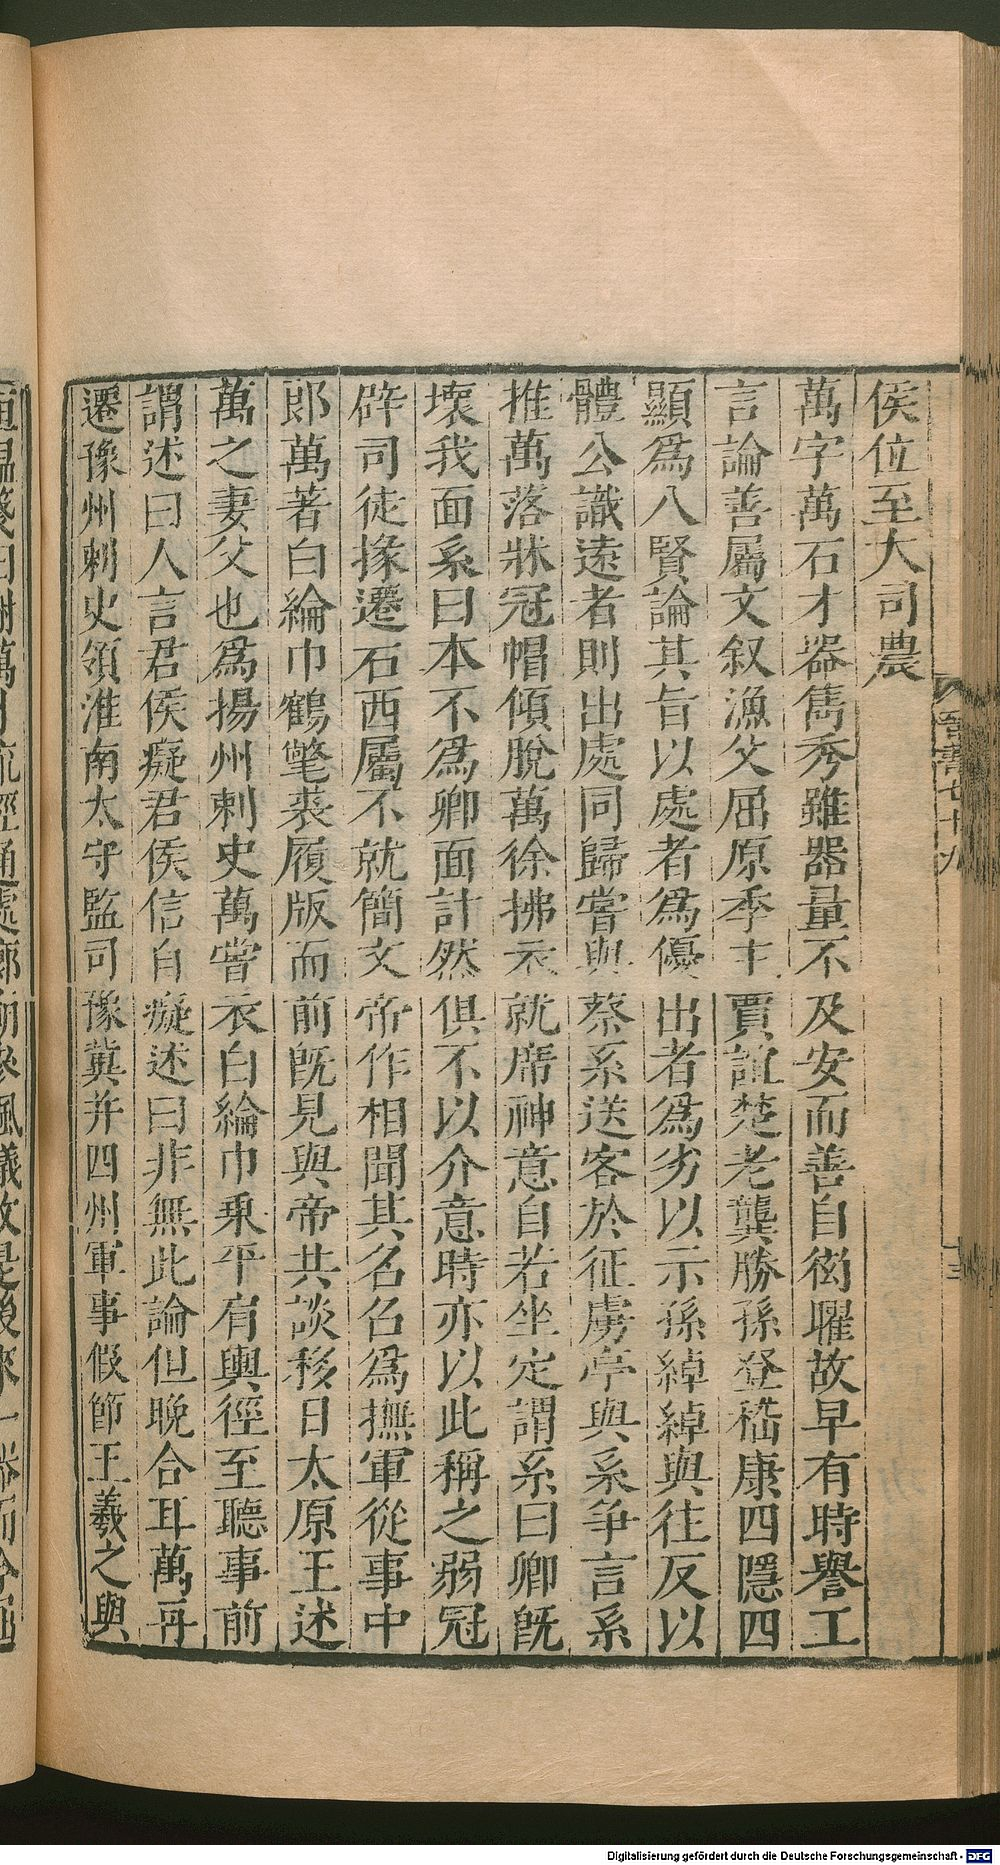 侯位至大司農
萬字萬石才器雋秀雖器量不及安而善自衒曜故早有時譽工
言論善屬文叙漁父屈原季主賈誼楚老龔勝孫登嵇康四隱四
顯爲八賢論其旨以處者爲優出者爲劣以示孫綽綽與往反以
體公識遠者則出處同歸嘗與蔡系送客於征虜亭與系爭言系
推萬落牀冠帽傾脫萬徐拂衣就席神意自若坐定謂系曰卿旣
壞我面系曰本不爲卿面計然俱不以介意時亦以此稱之弱冠
辟司徒掾遷右西屬不就簡文帝作相聞其名名爲撫軍從事中
郎萬著白綸巾鶴氅裘履版而前旣見與帝共談移日太原王述
萬之妻父也爲揚州刺史萬嘗衣白綸巾乘平肩輿徑至聽事前
謂述曰人言君侯癡君侯信自癡述曰非無此論但晚合耳萬再
遷豫州刺史領淮南太守監司豫冀并四州軍事假節王羲之與
晉書七十九
十三
Digitalisierung gefördert durch die Deutsche Forschungsgemeinschaft - DFG